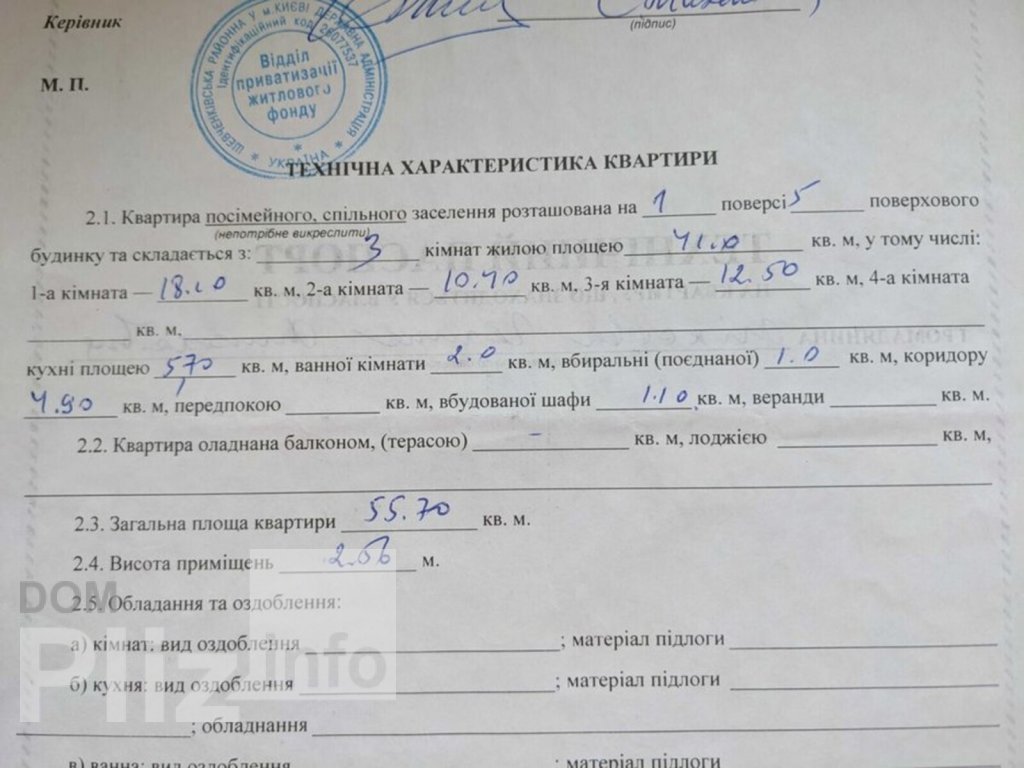 Керівник
(підпис)
ШЕВЧЕНКІВСЬКА РАЙОННА У М.КИЄВІ ДЕРЖАВНА АДМІНІСТРАЦІЯ * УКРАЇНА *
Ідентифікаційний код 26077537
Відділ
приватизації
житлового
фонду
М. П.
ТЕХНІЧНА ХАРАКТЕРИСТИКА КВАРТИРИ
2.1. Квартира посімейного, спільного заселення розташована на 1 поверсі 5 поверхового
(непотрібне викреслити)
будинку та складається з: 3 кімнат жилою площею 41.0 кв. м, у тому числі:
1-а кімната — 18.10 кв. м, 2-а кімната — 10.40 кв. м, 3-я кімната — 12.50 кв. м, 4-а кімната
кв. м,
кухні площею 5,70 кв. м, ванної кімнати 2.0 кв. м, вбиральні (поєднаної) 1.0 кв. м, коридору
4.90 кв. м, передпокою кв. м, вбудованої шафи 1.10 кв. м, веранди кв. м.
2.2. Квартира оладнана балконом, (терасою) - кв. м, лоджією кв. м,
2.3. Загальна площа квартири 55.70 кв. м.
2.4. Висота приміщень м.
2.5. Обладання та оздоблення:
а) кімнат: вид оздоблення ; матеріал підлоги
б) кухня: вид оздоблення ; матеріал підлоги
; обладнання
в) ванна: вид оздоблення ; матеріал підлоги
DOM
Pliz info